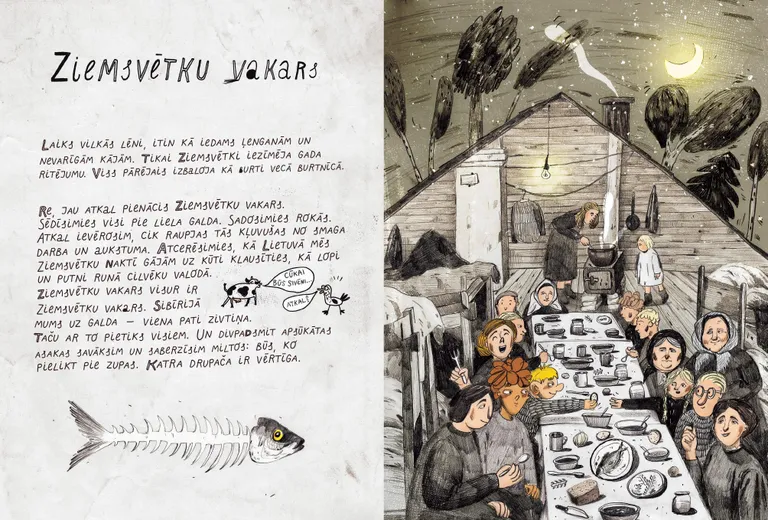 Ziemsvētku vakars
Laiks vilkās lēni, itin kā iedams ļenganām un
nevarīgām kājām. Tikai Ziemsvētki iezīmēja gada
ritējumu. Viss pārējais izbaloja kā burti vecā burtnīcā.
Re, jau atkal pienācis Ziemsvētku vakars.
Sēdīsimies visi pie liela galda. Sadosimies rokās.
Atkal ievērosim, cik raupjas tās kļuvušas no smaga
darba un aukstuma. Atcerēsimies, kā Lietuvā mēs
Ziemsvētku naktī gājām uz kūti klausīties, kā lopi
un putni runā cilvēku valodā.
Ziemsvētku vakars visur ir
Ziemsvētku vakars. Sibīrijā
mums uz galda – viena pati zivtiņa.
Taču ar to pietiks visiem. Un divpadsmit apsūkātas
asakas savāksim un saberzīsim miltos: būs, ko
pielikt pie zupas. Katra drupača ir vērtīga.
CŪKAI
BŪS SIVĒNI...
ATKAL?